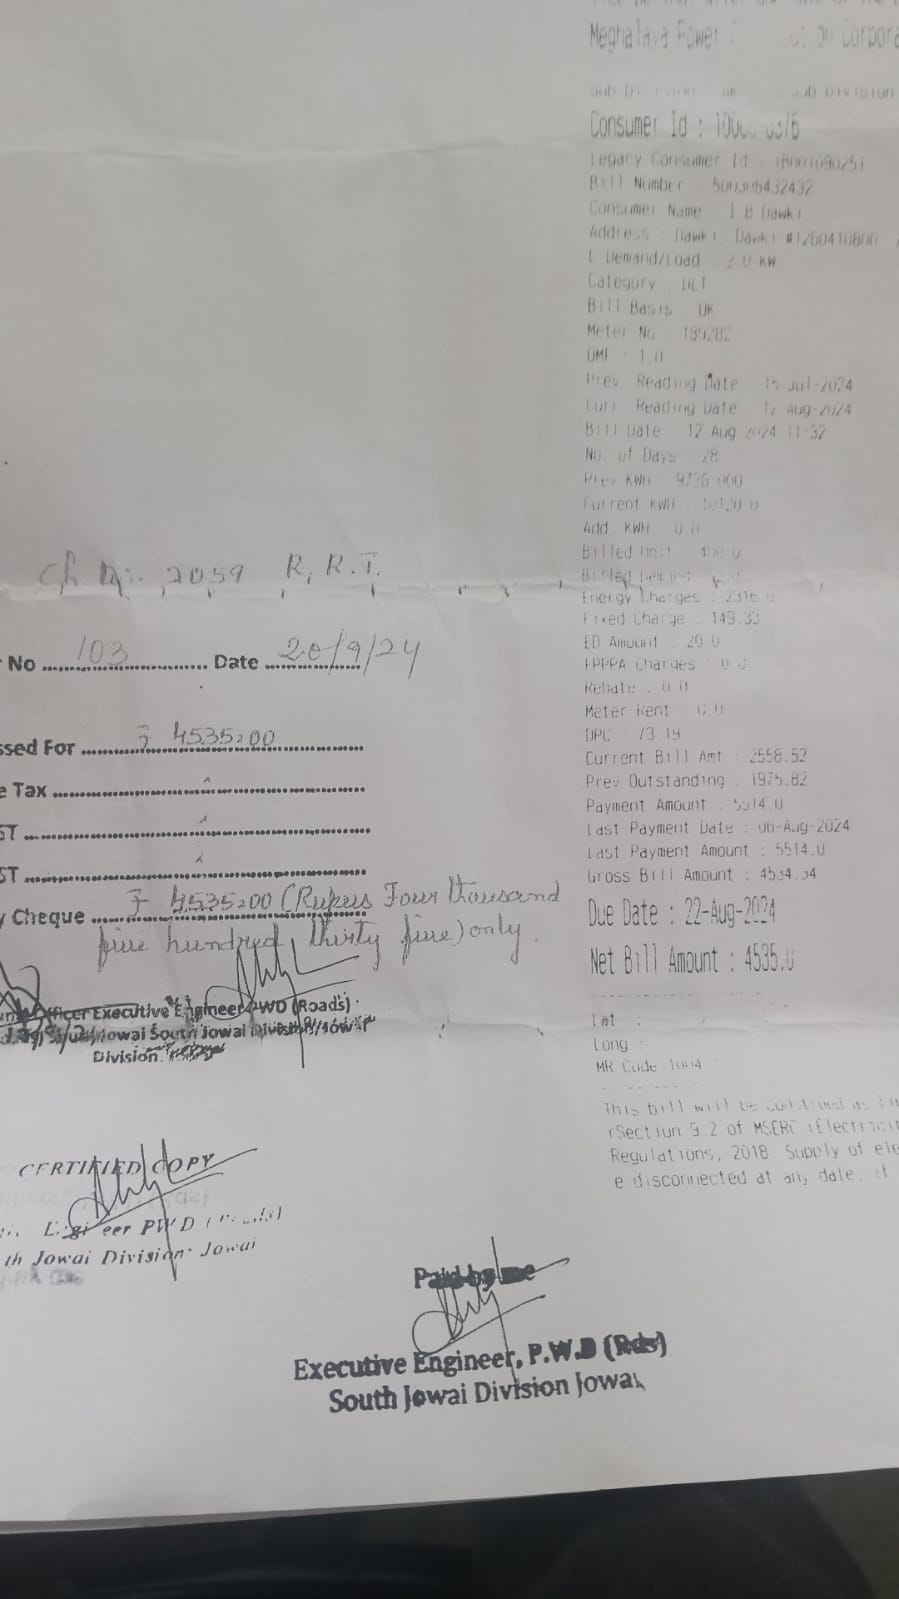 Meghalaya Power
Consumer Id :
Legacy Consumer Id :
Bill Number : 500306432432
Consumer Name : I B Dawki
Address : Dawki, Dawki #1260410800
C Demand/Load : 2.0 KW
Category : DLT
Bill Basis : OK
Meter No 189282
OMF : 1.0
Prev Reading Date : 15 Jul-2024
Curr Reading Date : 12 Aug-2024
Bill Date : 12 Aug-2024 11:32
No. of Days : 28
Prev KWH :
Current KWH :
Add KWH : 0.0
Billed Unit
Billed Demand
Energy Charges : 2316.0
Fixed Charge : 149.33
ED Amount : 20.0
FPPPA Charges : 0.0
Rebate : 0.0
Meter Rent : 0.0
DPC : 73.19
Current Bill Amt : 2558.52
Prev Outstanding : 1975.82
Payment Amount : 5514.0
Last Payment Date : 06-Aug-2024
Last Payment Amount : 5514.0
Gross Bill Amount : 4534.34
Due Date : 22-Aug-2024
Net Bill Amount : 4535.0
Lat :
Long :
MR Code
This bill will be
Section 9.2 of MSERC (Electricit
Regulations, 2018. Supply of ele
e disconnected at any date, if
2059 R.R.T.
No 103 Date 20/9/24
ssed For ₹ 4535.00
e Tax
ST
ST
y Cheque ₹ 4535.00 (Rupees Four thousand
five hundred thirty five) only.
Officer Executive Engineer PWD (Roads)
Jowai South Jowai Division
Division
CERTIFIED COPY
Engineer PWD (Roads)
th Jowai Division Jowai
Paid by me
Executive Engineer, P.W.D (Rds)
South Jowai Division Jowai